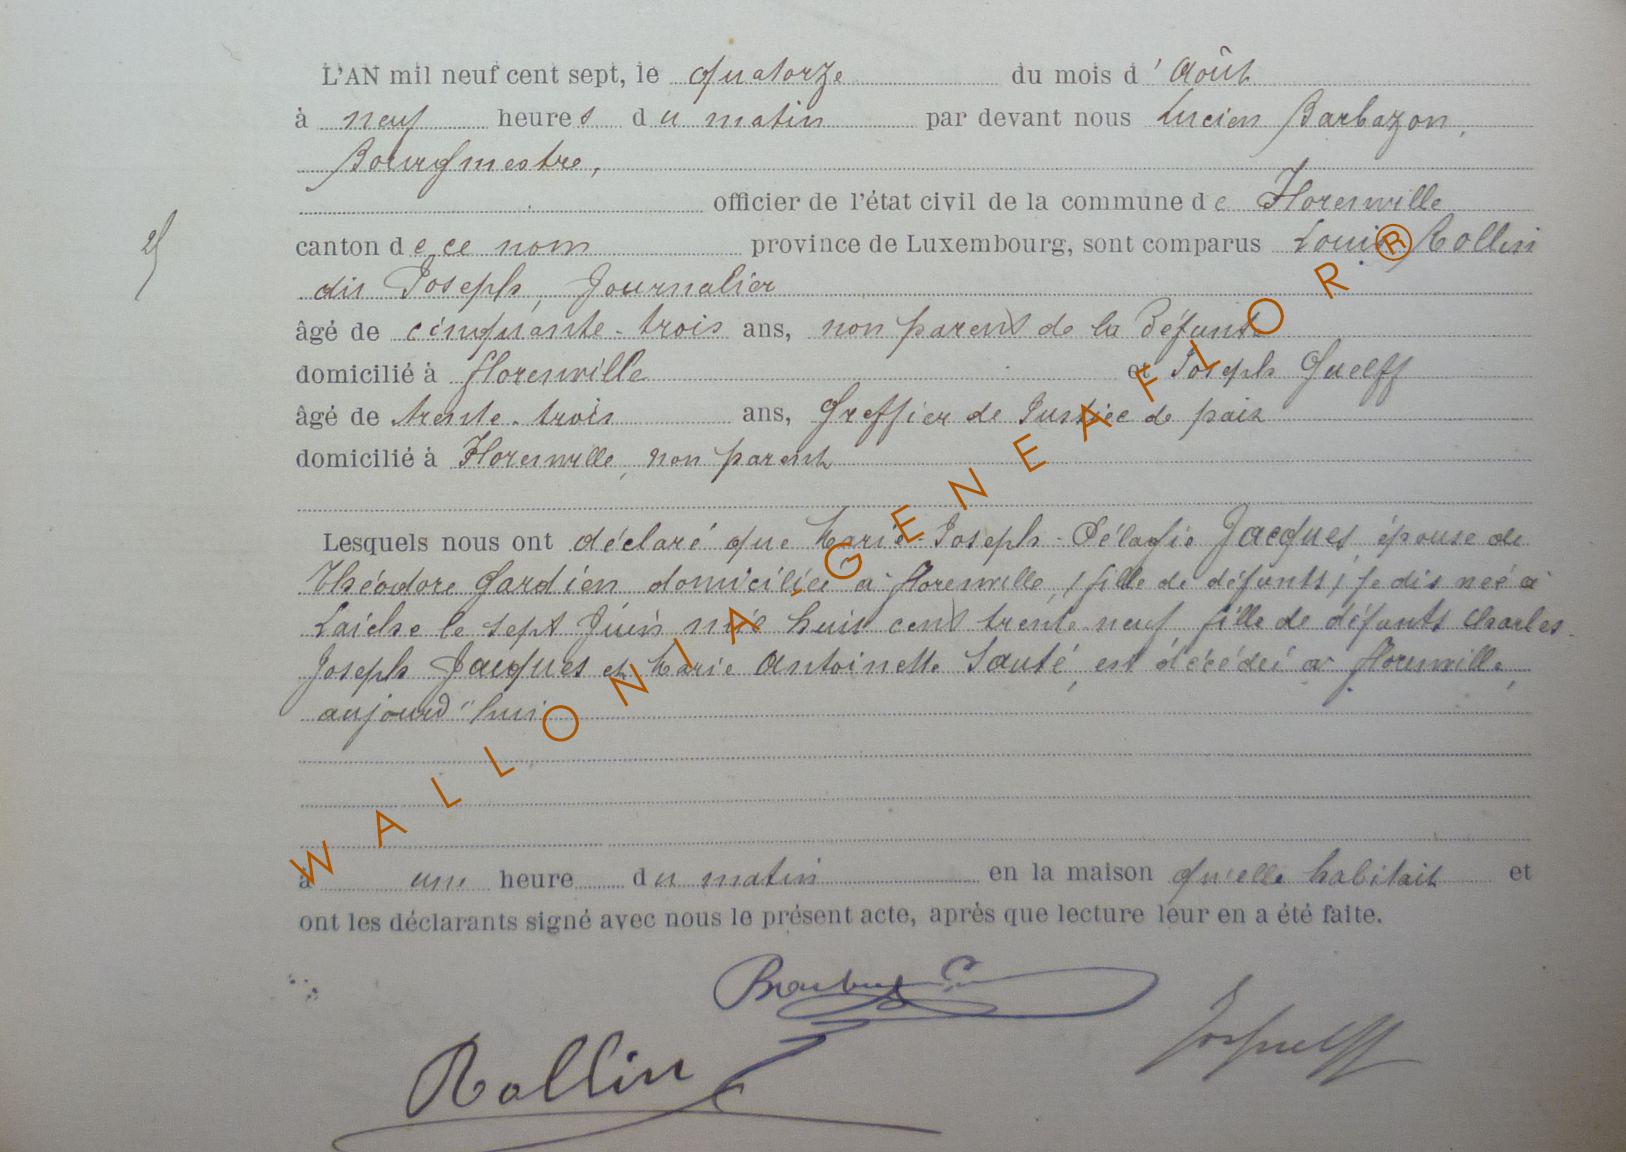 L'AN mil neuf cent sept, le quatorze du mois d'Août
à neuf heures du matin par devant nous Lucien Barbazon,
Bourgmestre,
officier de l'état civil de la commune de Florenville
canton de ce nom province de Luxembourg, sont comparus Louis Rollin
dit Joseph, Journalier
âgé de cinquante-trois ans, non parent de la défunte
domicilié à Florenville et Joseph Guelff
âgé de trente-trois ans, Greffier de Justice de paix
domicilié à Florenville, non parent
Lesquels nous ont déclaré que Marie-Joseph-Pélagie Jacques, épouse de
Théodore Gardien domiciliée à Florenville, (fille de défunts) je dis née à
Laiche le sept Juin mil huit cent trente neuf, fille de défunts Charles-
Joseph Jacques et Marie Antoinette Sauté, est décédée à Florenville,
aujourd'hui
à une heure du matin en la maison qu'elle habitait et
ont les déclarants signé avec nous le présent acte, après que lecture leur en a été faite.
Rollin
Jos Guelff
WALLONIA-GENEAFLOR®